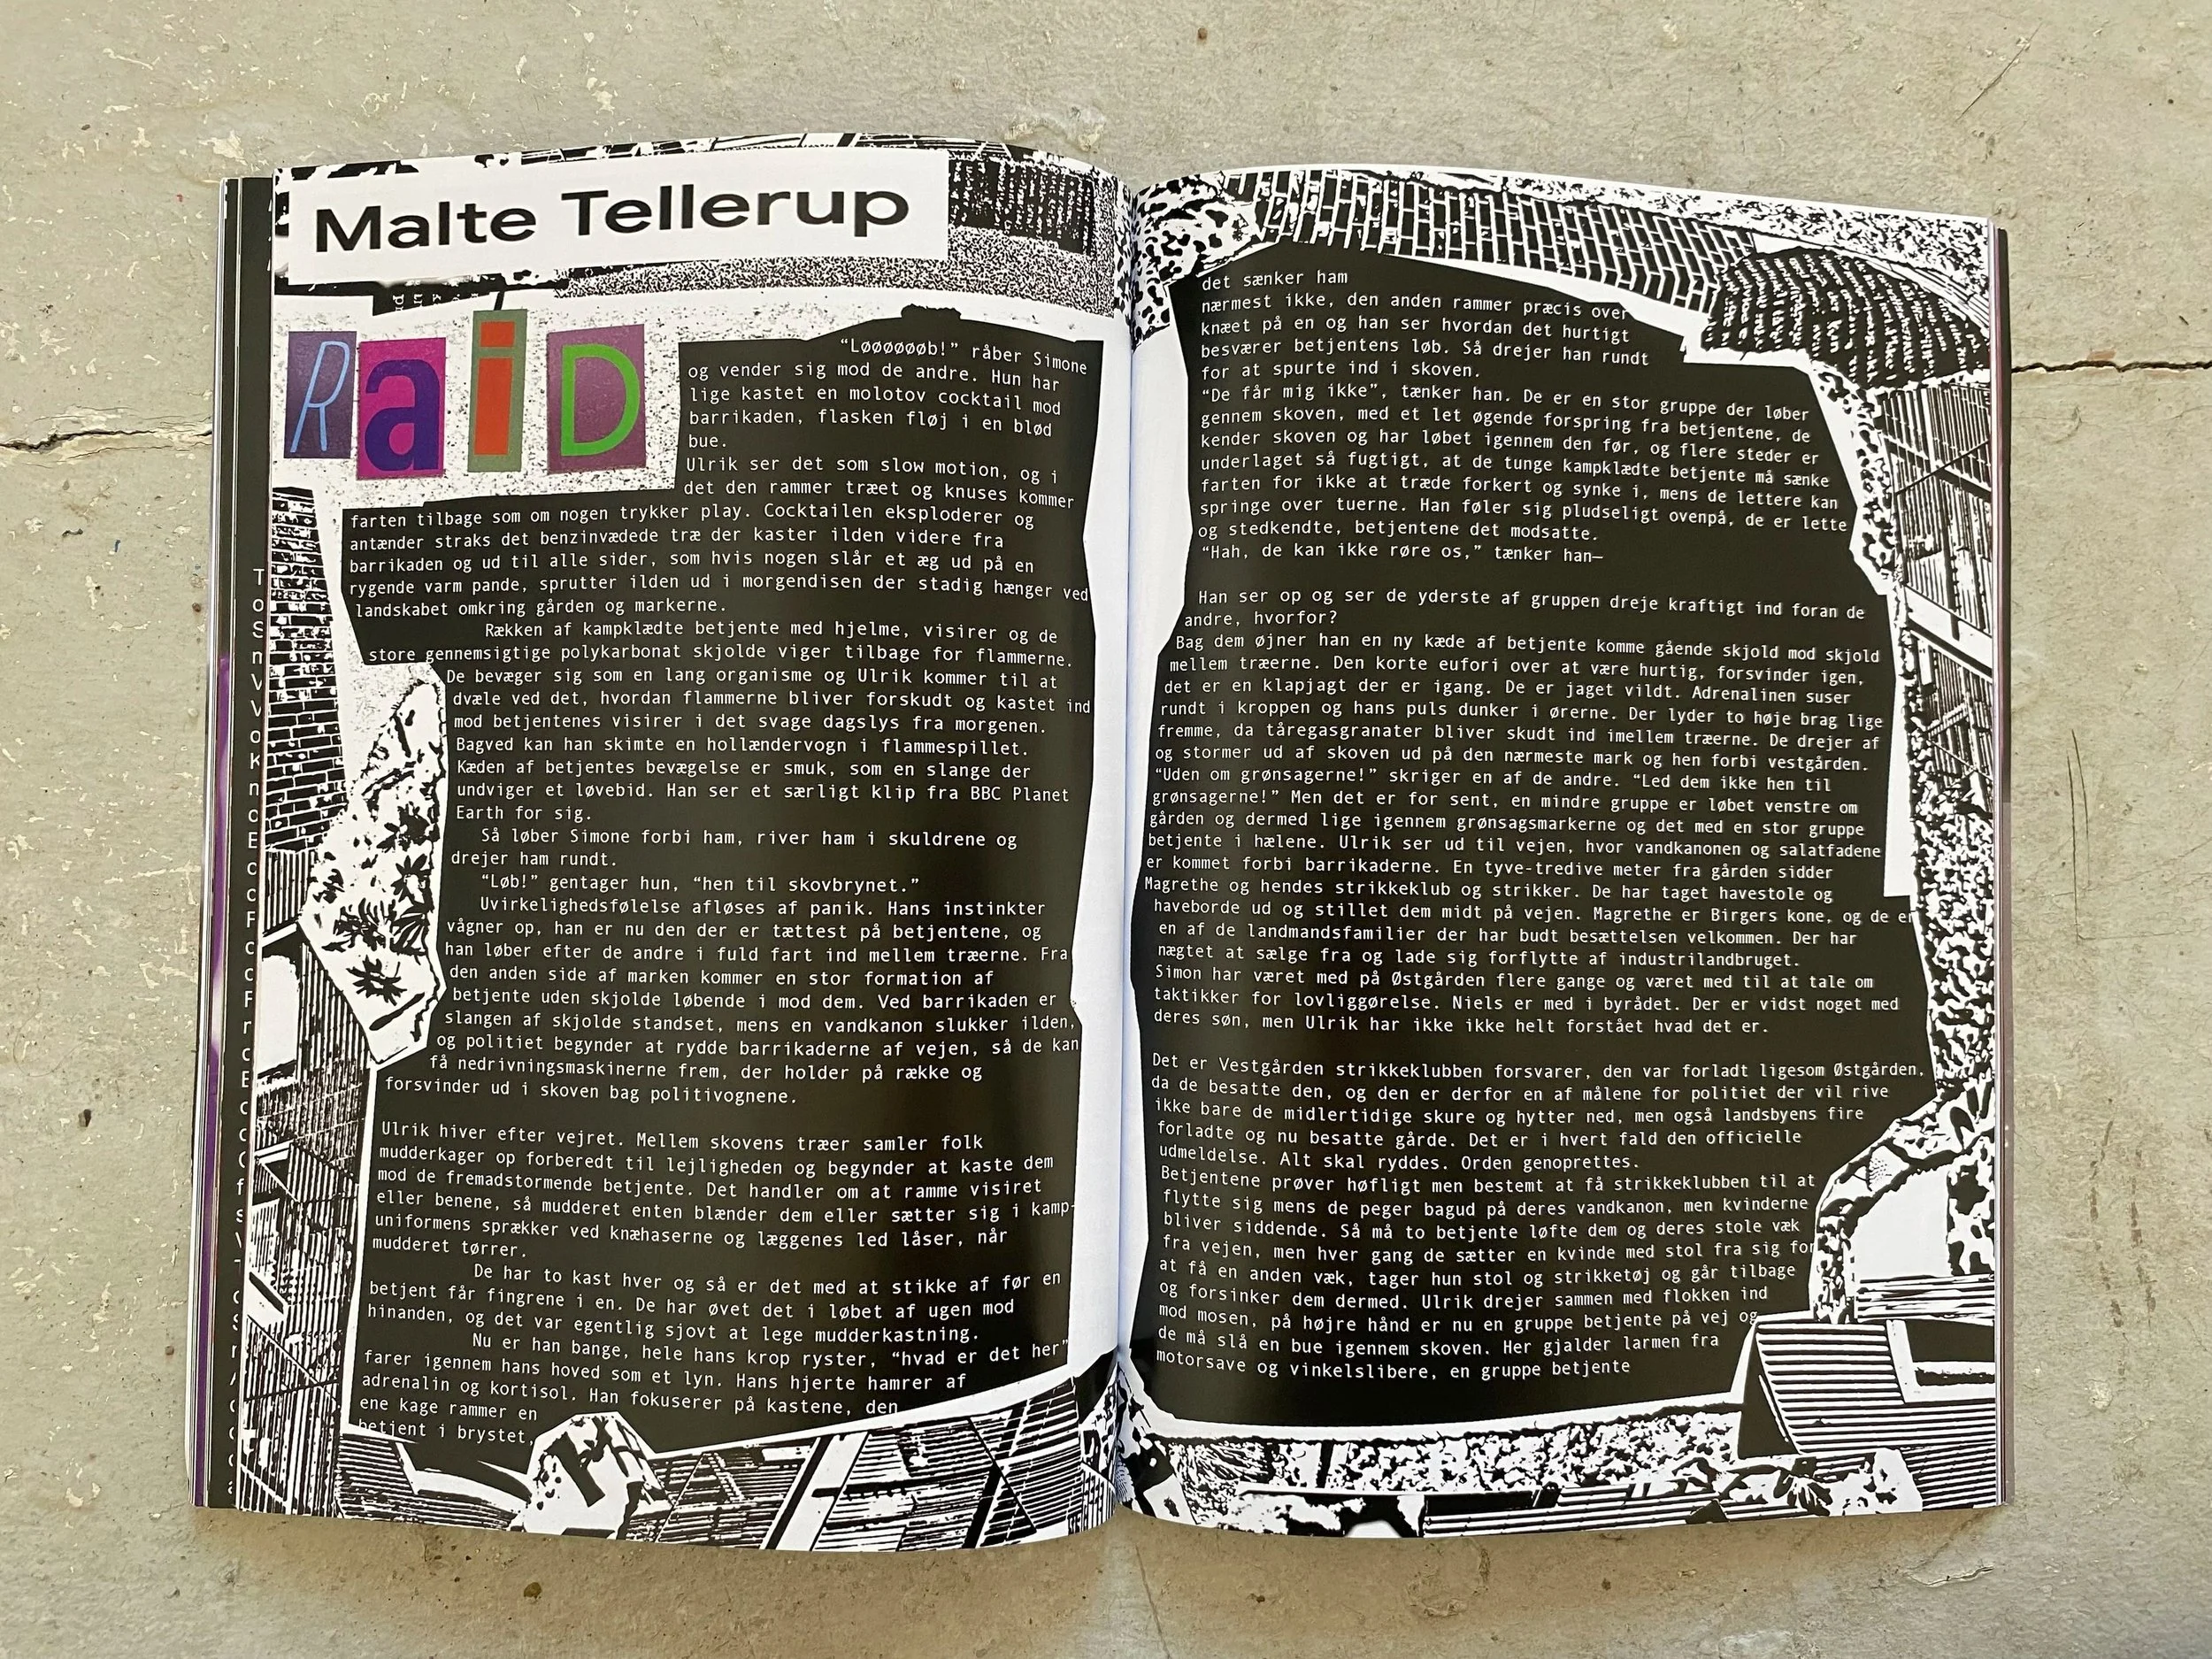 Malte Tellerup
RaiD
“Løøøøøøb!” råber Simone
og vender sig mod de andre. Hun har
lige kastet en molotov cocktail mod
barrikaden, flasken fløj i en blød
bue.
Ulrik ser det som slow motion, og i
det den rammer træet og knuses kommer
farten tilbage som om nogen trykker play. Cocktailen eksploderer og
antænder straks det benzinvædede træ der kaster ilden videre fra
barrikaden og ud til alle sider, som hvis nogen slår et æg ud på en
rygende varm pande, sprutter ilden ud i morgendisen der stadig hænger ved
landskabet omkring gården og markerne.
Rækken af kampklædte betjente med hjelme, visirer og de
store gennemsigtige polykarbonat skjolde viger tilbage for flammerne.
De bevæger sig som en lang organisme og Ulrik kommer til at
dvæle ved det, hvordan flammerne bliver forskudt og kastet ind
mod betjentenes visirer i det svage dagslys fra morgenen.
Bagved kan han skimte en hollændervogn i flammespillet.
Kæden af betjentes bevægelse er smuk, som en slange der
undviger et løvebid. Han ser et særligt klip fra BBC Planet
Earth for sig.
Så løber Simone forbi ham, river ham i skuldrene og
drejer ham rundt.
“Løb!” gentager hun, “hen til skovbrynet.”
Uvirkelighedsfølelse afløses af panik. Hans instinkter
vågner op, han er nu den der er tættest på betjentene, og
han løber efter de andre i fuld fart ind mellem træerne. Fra
den anden side af marken kommer en stor formation af
betjente uden skjolde løbende i mod dem. Ved barrikaden er
slangen af skjolde standset, mens en vandkanon slukker ilden,
og politiet begynder at rydde barrikaderne af vejen, så de kan
få nedrivningsmaskinerne frem, der holder på række og
forsvinder ud i skoven bag politivognene.
Ulrik hiver efter vejret. Mellem skovens træer samler folk
mudderkager op forberedt til lejligheden og begynder at kaste dem
mod de fremadstormende betjente. Det handler om at ramme visiret
eller benene, så mudderet enten blænder dem eller sætter sig i kamp-
uniformens sprækker ved knæhaserne og læggenes led låser, når
mudderet tørrer.
De har to kast hver og så er det med at stikke af før en
betjent får fingrene i en. De har øvet det i løbet af ugen mod
hinanden, og det var egentlig sjovt at lege mudderkastning.
Nu er han bange, hele hans krop ryster, “hvad er det her”
farer igennem hans hoved som et lyn. Hans hjerte hamrer af
adrenalin og kortisol. Han fokuserer på kastene, den
ene kage rammer en
betjent i brystet,
det sænker ham
nærmest ikke, den anden rammer præcis over
knæet på en og han ser hvordan det hurtigt
besværer betjentens løb. Så drejer han rundt
for at spurte ind i skoven.
“De får mig ikke”, tænker han. De er en stor gruppe der løber
gennem skoven, med et let øgende forspring fra betjentene, de
kender skoven og har løbet igennem den før, og flere steder er
underlaget så fugtigt, at de tunge kampklædte betjente må sænke
farten for ikke at træde forkert og synke i, mens de lettere kan
springe over tuerne. Han føler sig pludseligt ovenpå, de er lette
og stedkendte, betjentene det modsatte.
“Hah, de kan ikke røre os,” tænker han—
Han ser op og ser de yderste af gruppen dreje kraftigt ind foran de
andre, hvorfor?
Bag dem øjner han en ny kæde af betjente komme gående skjold mod skjold
mellem træerne. Den korte eufori over at være hurtig, forsvinder igen,
det er en klapjagt der er igang. De er jaget vildt. Adrenalinen suser
rundt i kroppen og hans puls dunker i ørerne. Der lyder to høje brag lige
fremme, da tåregasgranater bliver skudt ind imellem træerne. De drejer af
og stormer ud af skoven ud på den nærmeste mark og hen forbi vestgården.
“Uden om grønsagerne!” skriger en af de andre. “Led dem ikke hen til
grønsagerne!” Men det er for sent, en mindre gruppe er løbet venstre om
gården og dermed lige igennem grønsagsmarkerne og det med en stor gruppe
betjente i hælene. Ulrik ser ud til vejen, hvor vandkanonen og salatfadene
er kommet forbi barrikaderne. En tyve-tredive meter fra gården sidder
Magrethe og hendes strikkeklub og strikker. De har taget havestole og
haveborde ud og stillet dem midt på vejen. Magrethe er Birgers kone, og de er
en af de landmandsfamilier der har budt besættelsen velkommen. Der har
nægtet at sælge fra og lade sig forflytte af industrilandbruget.
Simon har været med på Østgården flere gange og været med til at tale om
taktikker for lovliggørelse. Niels er med i byrådet. Der er vidst noget med
deres søn, men Ulrik har ikke ikke helt forstået hvad det er.
Det er Vestgården strikkeklubben forsvarer, den var forladt ligesom Østgården,
da de besatte den, og den er derfor en af målene for politiet der vil rive
ikke bare de midlertidige skure og hytter ned, men også landsbyens fire
forladte og nu besatte gårde. Det er i hvert fald den officielle
udmeldelse. Alt skal ryddes. Orden genoprettes.
Betjentene prøver høfligt men bestemt at få strikkeklubben til at
flytte sig mens de peger bagud på deres vandkanon, men kvinderne
bliver siddende. Så må to betjente løfte dem og deres stole væk
fra vejen, men hver gang de sætter en kvinde med stol fra sig for
at få en anden væk, tager hun stol og strikketøj og går tilbage
og forsinker dem dermed. Ulrik drejer sammen med flokken ind
mod mosen, på højre hånd er nu en gruppe betjente på vej og
de må slå en bue igennem skoven. Her gjalder larmen fra
motorsave og vinkelslibere, en gruppe betjente